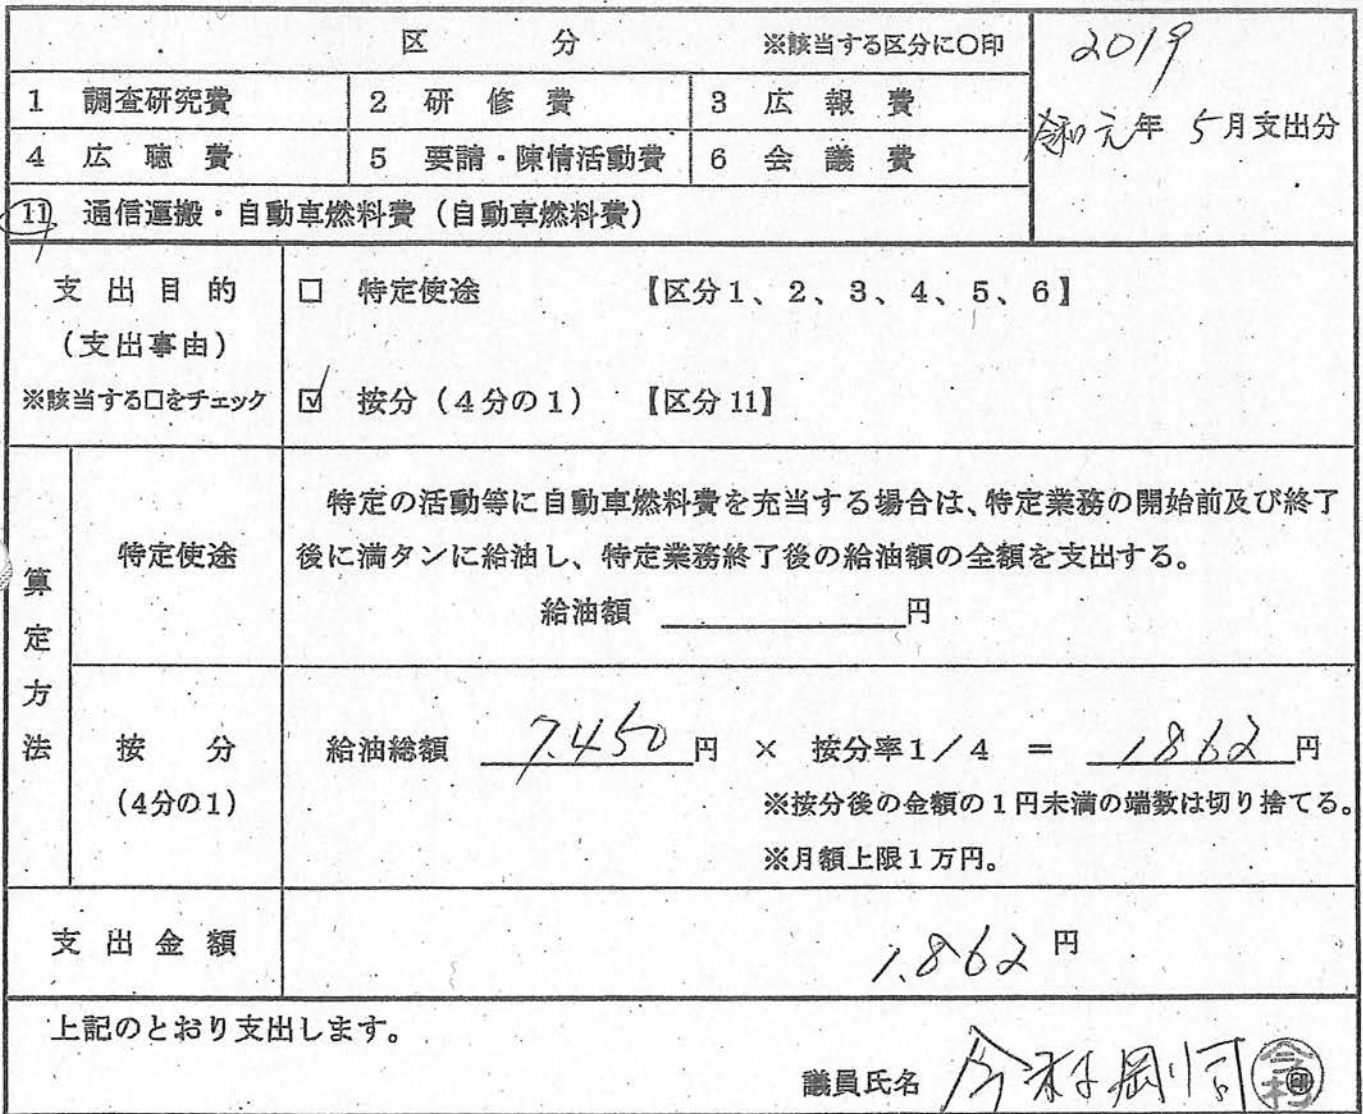 区 分 ※該当する区分に○印
2019
令和元年 5月支出分
1 調査研究費 2 研修費 3 広報費
4 広聴費 5 要請・陳情活動費 6 会議費
11 通信運搬・自動車燃料費（自動車燃料費）
支出目的
（支出事由）
※該当する□をチェック
□ 特定使途 【区分1、2、3、4、5、6】
☑ 按分（4分の1） 【区分11】
算定方法
特定使途
特定の活動等に自動車燃料費を充当する場合は、特定業務の開始前及び終了
後に満タンに給油し、特定業務終了後の給油額の全額を支出する。
給油額 円
按分
（4分の1）
給油総額 7.450円 × 按分率1／4 ＝ 1862円
※按分後の金額の1円未満の端数は切り捨てる。
※月額上限1万円。
支出金額 1.862円
上記のとおり支出します。
議員氏名 今村剛司 今村 印